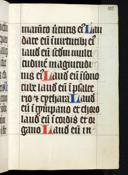 mam̄to ūtutis eī Lau
date eū in uirtutib; eī
laud eū scd̄m multi
tudinē magnitudi
nis eī Laud eū ī sono
tube laud eū ī psalte
rio & cythara Laud
eū ī tympano et choro
laud eū ī cordis et or
gano Laud eū in